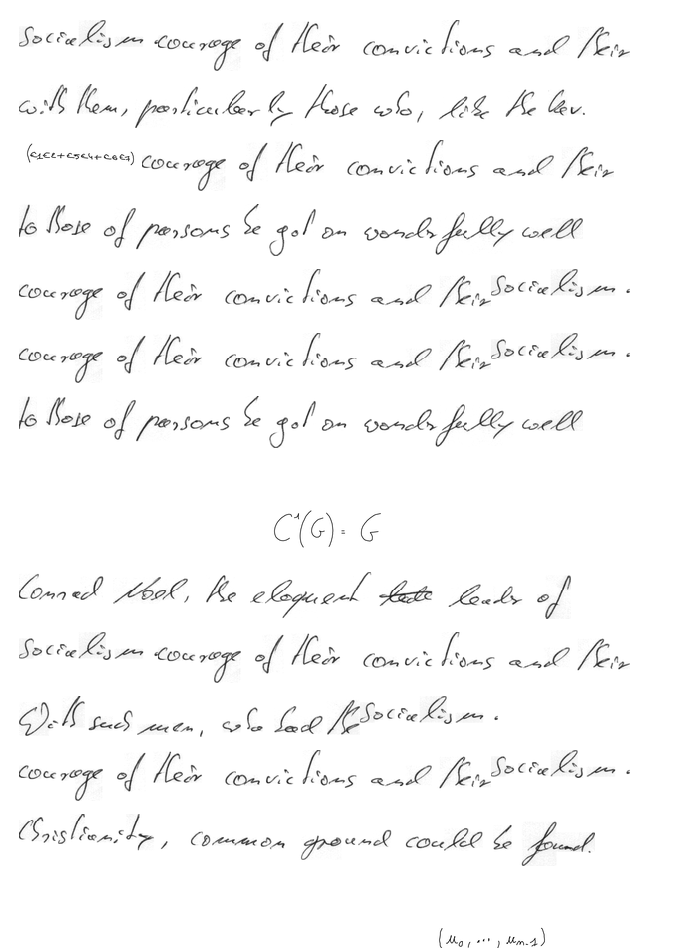 Socialism courage of their convictions and their
with them, particularly those who, like the Rev.
(c1c2+c3c4+c5c6) courage of their convictions and their
to those of persons he got on wonderfully well
courage of their convictions and their Socialism.
courage of their convictions and their Socialism.
to those of persons he got on wonderfully well
C¹(G) = G
Conrad Noel, the eloquent leader of
Socialism courage of their convictions and their
With such men, who had the Socialism.
courage of their convictions and their Socialism.
Christianity, common ground could be found.
(u₀, ..., uₙ₋₁)